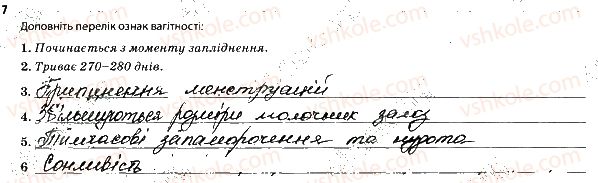 7
Доповніть перелік ознак вагітності:
1. Починається з моменту запліднення.
2. Триває 270–280 днів.
3. Припинення менструацій
4. Збільшуються розміри молочних залоз
5. Тимчасові запаморочення та нудота
6 Сонливість